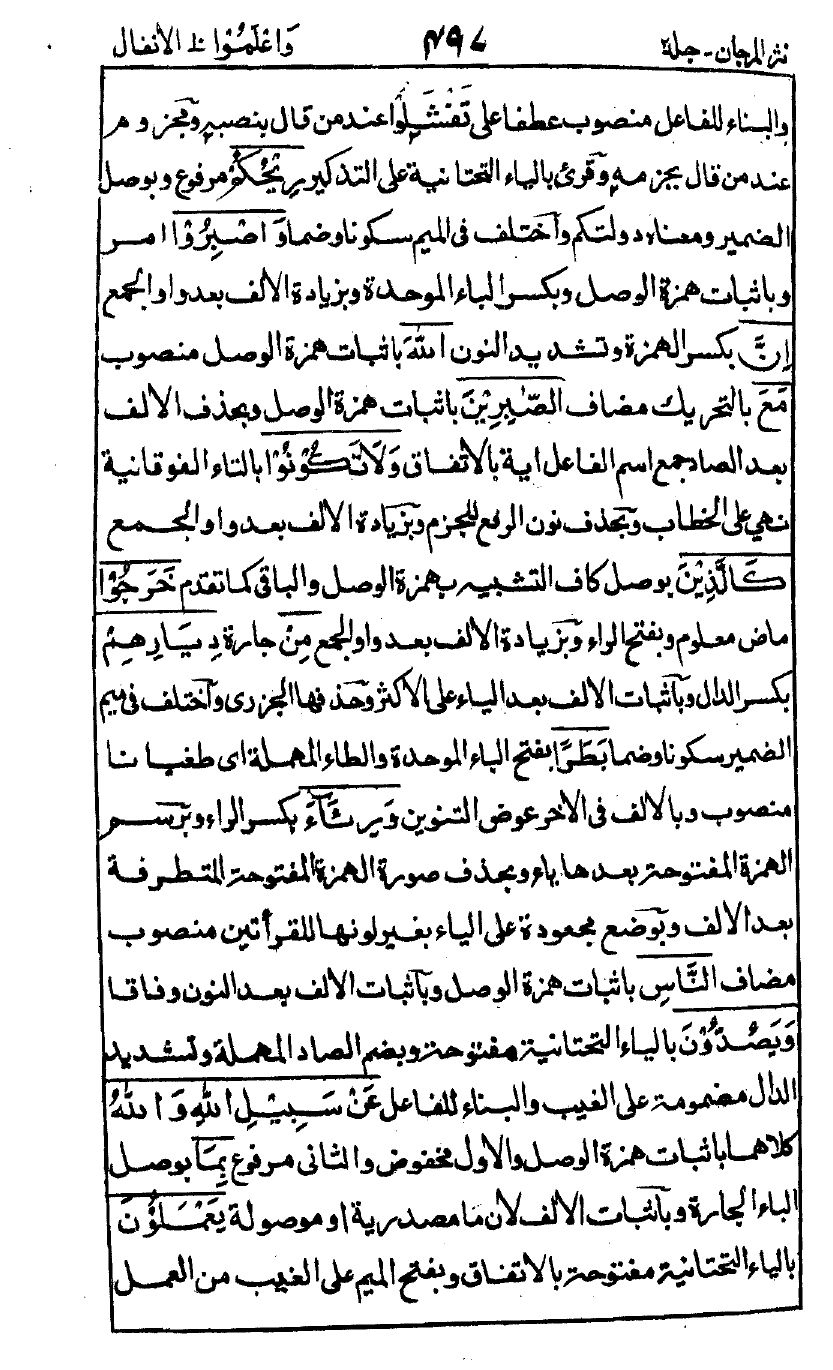 نثر المرجان - جلد٢ ٤٩٧ وَاعْلَمُوْا ١٠ الأنفال
والبناء للفاعل منصوب عطفا على تَفْشَلُوْا عند من قال بنصبه ومجزوم
عند من قال بجزمه وقرئ بالياء التحتانية على التذكير رِيْحُكُمْ مرفوع وبوصل
الضمير ومعناه دولتكم واختلف فى الميم سكونا وضما وَاصْبِرُوْا امر
وباثبات همزة الوصل وبكسر الباء الموحدة وبزيادة الالف بعد واو الجمع
إِنَّ بكسر الهمزة وتشديد النون اللهَ باثبات همزة الوصل منصوب
مَعَ بالتحريك مضاف الصّٰبِرِيْنَ باثبات همزة الوصل وبحذف الالف
بعد الصاد جمع اسم الفاعل اية بالاتفاق وَلَا تَكُوْنُوْا بالتاء الفوقانية
نهى على الخطاب وبحذف نون الرفع للجزم وبزيادة الالف بعد واو الجمع
كَالَّذِيْنَ بوصل كاف التشبيه بهمزة الوصل والباقى كما تقدم خَرَجُوْا
ماض معلوم وبفتح الراء وبزيادة الالف بعد واو الجمع مِنْ جارة دِيَارِهِمْ
بكسر الدال وباثبات الالف بعد الياء على الاكثر وحذفها الجزرى واختلف فى ميم
الضمير سكونا وضما بَطَرًا بفتح الباء الموحدة والطاء المهملة اى طغيانا
منصوب وبالالف فى الاخر عوض التنوين وَرِئَآءَ بكسر الراء وبرسم
الهمزة المفتوحة بعدها ياء وبحذف صورة الهمزة المفتوحة المتطرفة
بعد الالف وبوضع مجعودة على الياء بغير لونها للقرأتين منصوب
مضاف النَّاسِ باثبات همزة الوصل وباثبات الالف بعد النون وفاقا
وَيَصُدُّوْنَ بالياء التحتانية مفتوحة وبضم الصاد المهملة وتشديد
الدال مضمومة على الغيب والبناء للفاعل عَنْ سَبِيْلِ اللهِ وَاللهُ
كلاهما باثبات همزة الوصل والاول مخفوض والثانى مرفوع بِمَا بوصل
الباء الجارة وباثبات الالف لان ما مصدرية او موصولة يَعْمَلُوْنَ
بالياء التحتانية مفتوحة بالاتفاق وبفتح الميم على الغيب من العمل